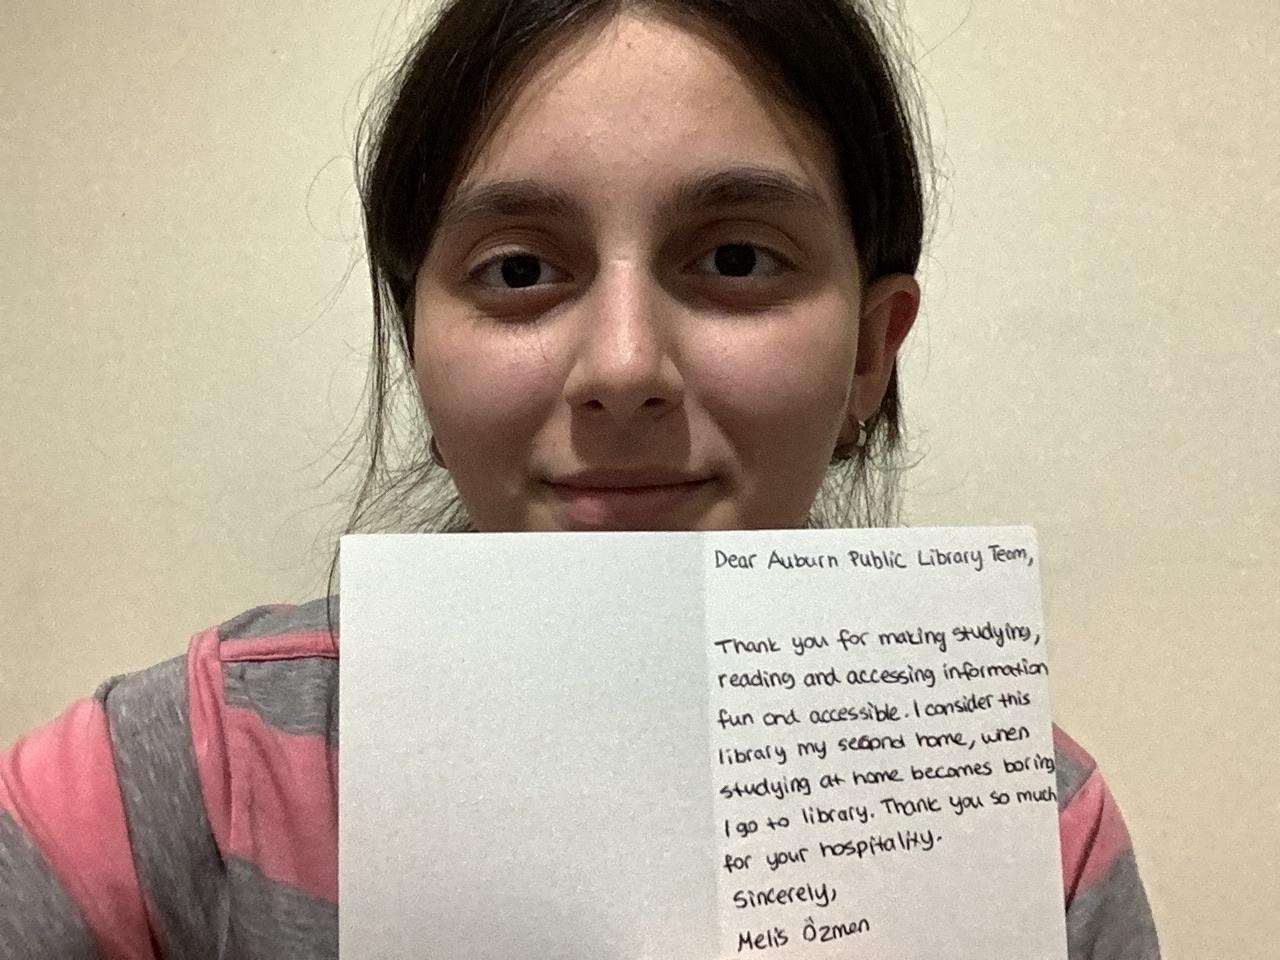 Dear Auburn Public Library Team,
Thank you for making studying,
reading and accessing information
fun and accessible. I consider this
library my second home, when
studying at home becomes boring
I go to library. Thank you so much
for your hospitality.
Sincerely,
Melis Özmen